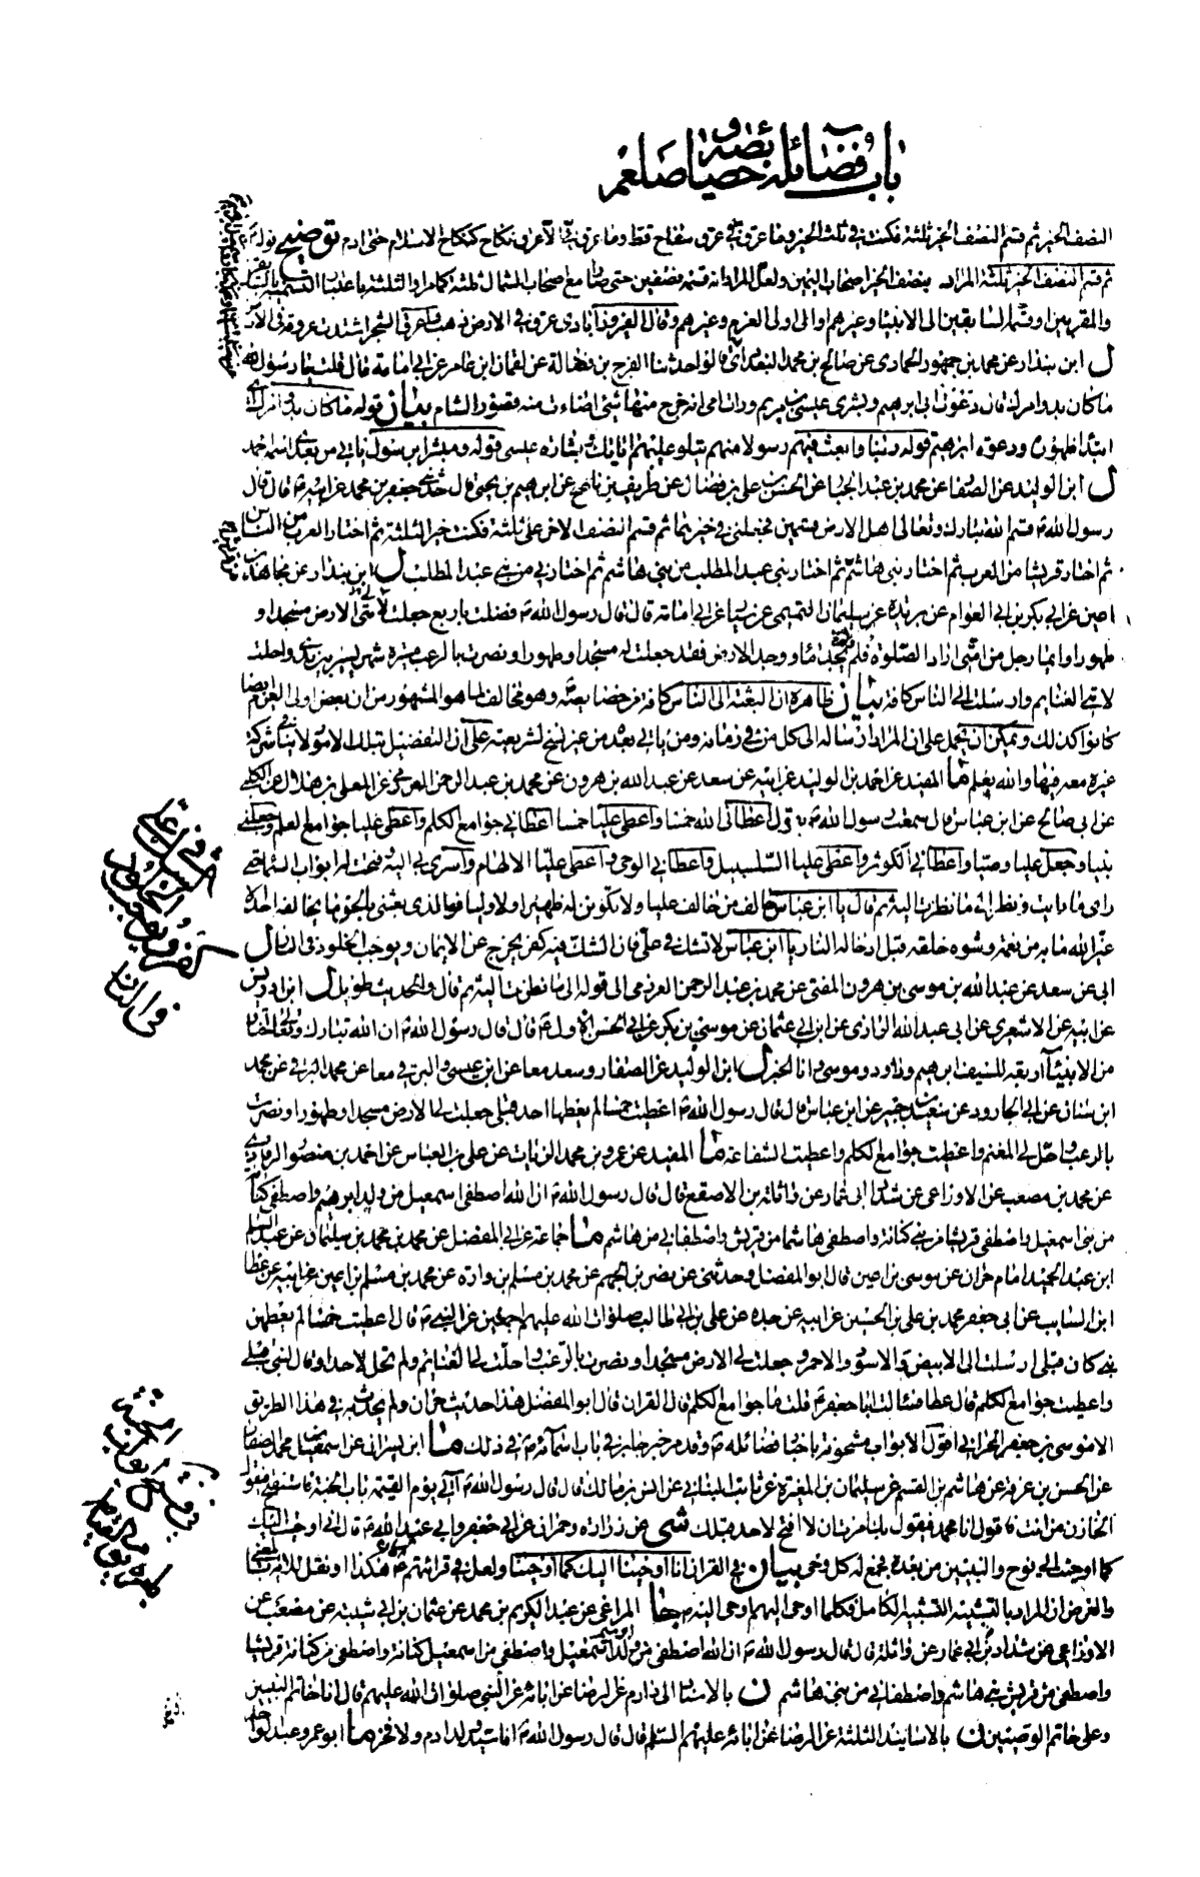 باب فضائله وخصائصه صلعم
النصف الخير ثم قسم النصف الخير ثلثة فكنت في ثلث الخير وما عرق في عرق سفاح قط وما عرق في الا عرق نكاح كنكاح الاسلام حتى ادم توضيح قوله
ثم قسم النصف الخير ثلثة المراد بنصف الخير اصحاب اليمين ولعل المراد انه قسمه نصفين حتى صار مع اصحاب الشمال ثلثة كما مر او الثلثة باعتبار القسمة
والمقربين او قسم السابقين الى الانبياء وغيرهم او الى اولى العزم وغيرهم وقال الفيروزابادى عرق في الارض ذهب
ل ابن بندار عن محمد بن جمهور الحمادى عن صالح بن محمد البغدادي قالوا حدثنا الفرج بن فضالة عن لقمان ابن عامر عن ابي امامة قال قلت يا رسول الله
ما كان بدو امرك قال دعوة ابي ابرهيم وبشرى عيسى بن مريم ورات امي انه خرج منها شئ اضاءت منه قصور الشام بيان قوله ما كان بدو امرك
ابتدا ظهوره ودعوة ابرهيم قوله ربنا وابعث فيهم رسولا منهم يتلو عليهم اياتك وبشارة عيسى قوله ومبشرا برسول ياتي من بعدي اسمه احمد
ل ابن الوليد عن الصفا عن محمد بن عبد الجبا عن الحسن بن علي بن فضال عن ظريف بن ناصح عن ابرهيم بن يحيى قال حدثني جعفر بن محمد عن ابيه ع قال قال
رسول الله ص قسم الله تبارك وتعالى اهل الارض قسمين فجعلني في خيرهما ثم قسم النصف الاخر على ثلثة فكنت خير الثلثة ثم اختار العرب من الناس
ثم اختار قريشا من العرب ثم اختار بني هاشم ثم اختار بني عبد المطلب من بني هاشم ثم اختارني من بني عبد المطلب ل ابن بندار عن مجاهد بن
اعين عن ابي بكر بن ابي العوام عن يزيد عن سليمان التميمى عن سيار عن ابي امامة قال قال رسول الله ص فضلت باربع جعلت لامتي الارض مسجدا و
طهورا وايما رجل من امتي اراد الصلوة فلم يجد ماء ووجد الارض فقد جعلت له مسجدا وطهورا ونصرت بالرعب مسيرة شهر يسير بين يدي واحلت
لامتي الغنايم وارسلت الى الناس كافة بيان ظاهره ان البعثة الى الناس كافة من خصايصه وهو مخالف لما هو المشهور من ان بعض اولى العزم ايضا
كانوا كذلك ويمكن ان يحمل على ان المراد ارساله الى كل من في زمانه ومن ياتي بعده من غير نسخ لشريعته على ان التفضيل بتلك الامور لا ينافي شركة
غيره معه فيها والله يعلم ما المفيد عن احمد بن الوليد عن ابيه عن سعد عن عبد الله بن هرون عن محمد بن عبد الرحمن العرزمي عن المعلى بن هلال عن الكلبي
عن ابي صالح عن ابن عباس قال سمعت رسول الله ص يقول اعطاني الله خمسا واعطى عليا خمسا اعطاني جوامع الكلم واعطى عليا جوامع العلم وجعلني
نبيا وجعل عليا وصيا واعطاني الكوثر واعطى عليا السلسبيل واعطاني الوحي واعطى عليا الالهام واسرى بي اليه وفتحت له ابواب السما حتى
راى ما رايت ونظر الى ما نظرت اليه ثم قال يا ابن عباس خالف من خالف عليا ولا تكونن له ظهيرا ولا وليا فوالذي بعثني بالحق ما يخالفه احد الا
غير الله ما به من نعمة وشوه خلقه قبل ادخاله النار يا ابن عباس لا تشك في علي فان الشك فيه كفر يخرج عن الايمان ويوجب الخلود في النار ل
ابي عن سعد عن عبد الله بن موسى بن هرون المفتى عن محمد بن عبد الرحمن العرزمي الى قوله الى ما نظرت اليه ثم قال والحديث طويل ل ابن ادريس
عن ابيه عن الاشعري عن ابي عبد الله الرازى عن ابن ابي عثمان عن موسى بن بكر عن ابي الحسن الاول ع قال قال رسول الله ص ان الله تبارك وتعالى اختار
من الانبياء اربعة للسيف ابرهيم وداود وموسى وانا الخبر ل ابن الوليد عن الصفار وسعد معا عن ابن عيسى والبرقي معا عن محمد البرقي عن محمد
ابن سنان عن ابي الجارود عن سعيد بن جبير عن ابن عباس قال قال رسول الله ص اعطيت خمسا لم يعطها احد قبلى جعلت لى الارض مسجدا وطهورا ونصرت
بالرعب واحل لى المغنم واعطيت جوامع الكلم واعطيت الشفاعة ما المفيد عن عمر بن محمد الزيات عن على بن العباس عن احمد بن منصور الرمادي
عن محمد بن مصعب عن الاوزاعى عن شداد ابى عمار عن واثلة بن الاصقع قال قال رسول الله ص ان الله اصطفى اسمعيل من ولد ابرهيم واصطفى كنانة
من بنى اسمعيل واصطفى قريشا من بنى كنانة واصطفى هاشما من قريش واصطفاني من هاشم ما جماعة عن ابي المفضل عن محمد بن محمد بن سليمان عن عبد السلم
ابن عبد الحميد امام حران عن موسى بن اعين قال ابو المفضل وحدثني عن نصر بن الجهم عن محمد بن مسلم بن وارة عن محمد بن مسلم بن اعين عن ابيه عن عطا
ابن السايب عن ابى جعفر محمد بن على بن الحسين عن ابيه عن جده عن على بن ابي طالب صلوات الله عليهم اجمعين عن النبي ص قال اعطيت خمسا لم يعطهن
نبي كان قبلى ارسلت الى الابيض والاسود والاحمر وجعلت لي الارض مسجدا ونصرت بالرعب واحلت لى الغنايم ولم تحل لاحد او قال لنبى قبلي
واعطيت جوامع الكلم قال عطا فسالت ابا جعفر ع قلت ما جوامع الكلم قال القران قال ابو المفضل هذا حديث حران ولم يحدث به في هذا الطريق
الا موسى بن جعفر الحراني اقول الابواب مشحونة باخبار فضائله ص وقد مر خبر جابر في باب اسمائه ص في ذلك ما ابن بسران عن اسمعيل بن محمد الصفار
عن الحسن بن عرفة عن هاشم بن القسم عن سليمان بن المغيرة عن ثابت البناني عن انس بن مالك قال قال رسول الله ص آتي يوم القيمة باب الجنة فاستفتح فيقول
الخازن من انت فاقول انا محمد فيقول بك امرت ان لا افتح لاحد قبلك شى عن زرارة وحمران عن ابي جعفر وابي عبد الله ع قال انى اوحيت اليك
كما اوحيت الى نوح والنبيين من بعده فجمع له كل وحى بيان في القران انا اوحينا اليك كما اوحينا ولعل في قرائتهم ع هكذا او نقل للاية بالمعنى
والغرض ان المراد بالتشبيه التشبيه الكامل فكلما اوحى اليهم اوحى اليه ص جا المراغي عن عبد الكريم بن محمد عن عثمان بن ابي شيبة عن مصعب عن
الاوزاعى عن شداد بن ابي عمار عن واثلة قال قال رسول الله ص ان الله اصطفى من ولد اسمعيل واصطفى من اسمعيل كنانة واصطفى من كنانة قريشا
واصطفى من قريش بنى هاشم واصطفاني من بنى هاشم ن بالاسناد الى دارم عن الرضا عن ابائه عن النبي صلوات الله عليهم قال انا خاتم النبيين
وعلى خاتم الوصيين ن بالاسانيد الثلثة عن الرضا عن ابائه عليهم السلم قال قال رسول الله ص انا سيد ولد ادم ولا فخر ما ابو عمرو عبد الواحد
الشك في علي
كفر ويوجب
الخلود
في النار